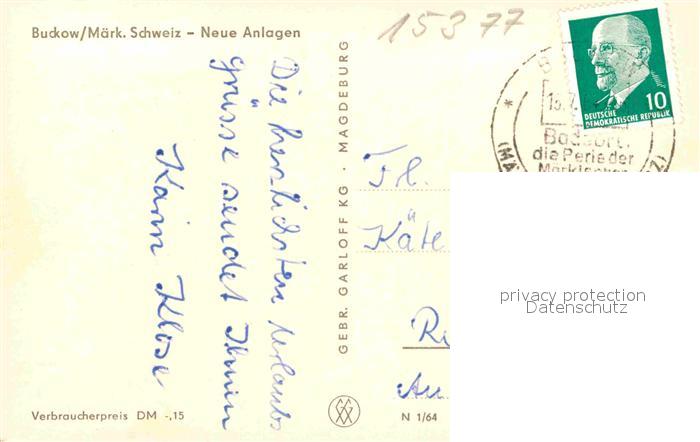 Buckow/Märk. Schweiz – Neue Anlagen
15377
Die herzlichsten Urlaubs
grüsse sendet Ihnen
Karin Klose
GEBR. GARLOFF KG · MAGDEBURG
10
DEUTSCHE
DEMOKRATISCHE REPUBLIK
15.7.
die Perle der
Märkischen
Frl.
Käte
privacy protection
Datenschutz
Verbraucherpreis DM -,15
N 1/64